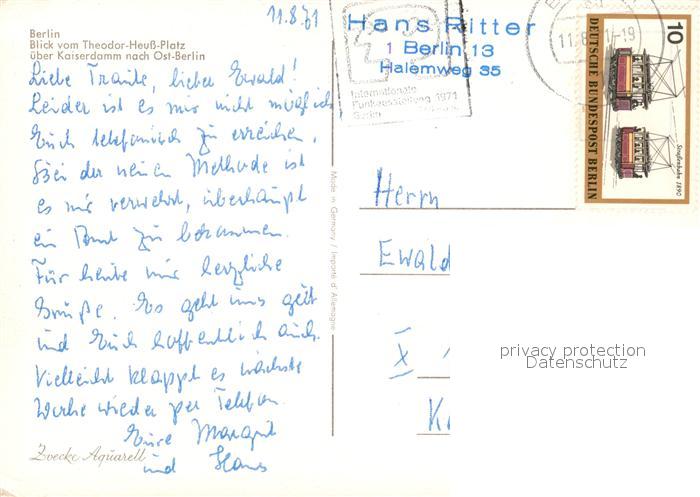 11.8.71
Berlin
Blick vom Theodor-Heuß-Platz
über Kaiserdamm nach Ost-Berlin
Liebe Traute, lieber Ewald!
Leider ist es mir nicht möglich
Euch telefonisch zu erreichen.
Bei der neuen Methode ist
es mir verwehrt, überhaupt
ein Amt zu bekommen.
Für heute nur herzliche
Grüße. Es geht uns gut
und Euch hoffentlich auch.
Vielleicht klappt es nächste
Woche wieder per Telefon.
Eure Margrit
und Hans
Zoecke Aquarell
Made in Germany / Importé d'Allemagne
Internationale
Funkausstellung 1971
Berlin
Hans Ritter
1 Berlin 13
Halemweg 35
11.8. 1-19
10
DEUTSCHE BUNDESPOST BERLIN
Straßenbahn 1890
Herrn
Ewald
X
privacy protection
Datenschutz